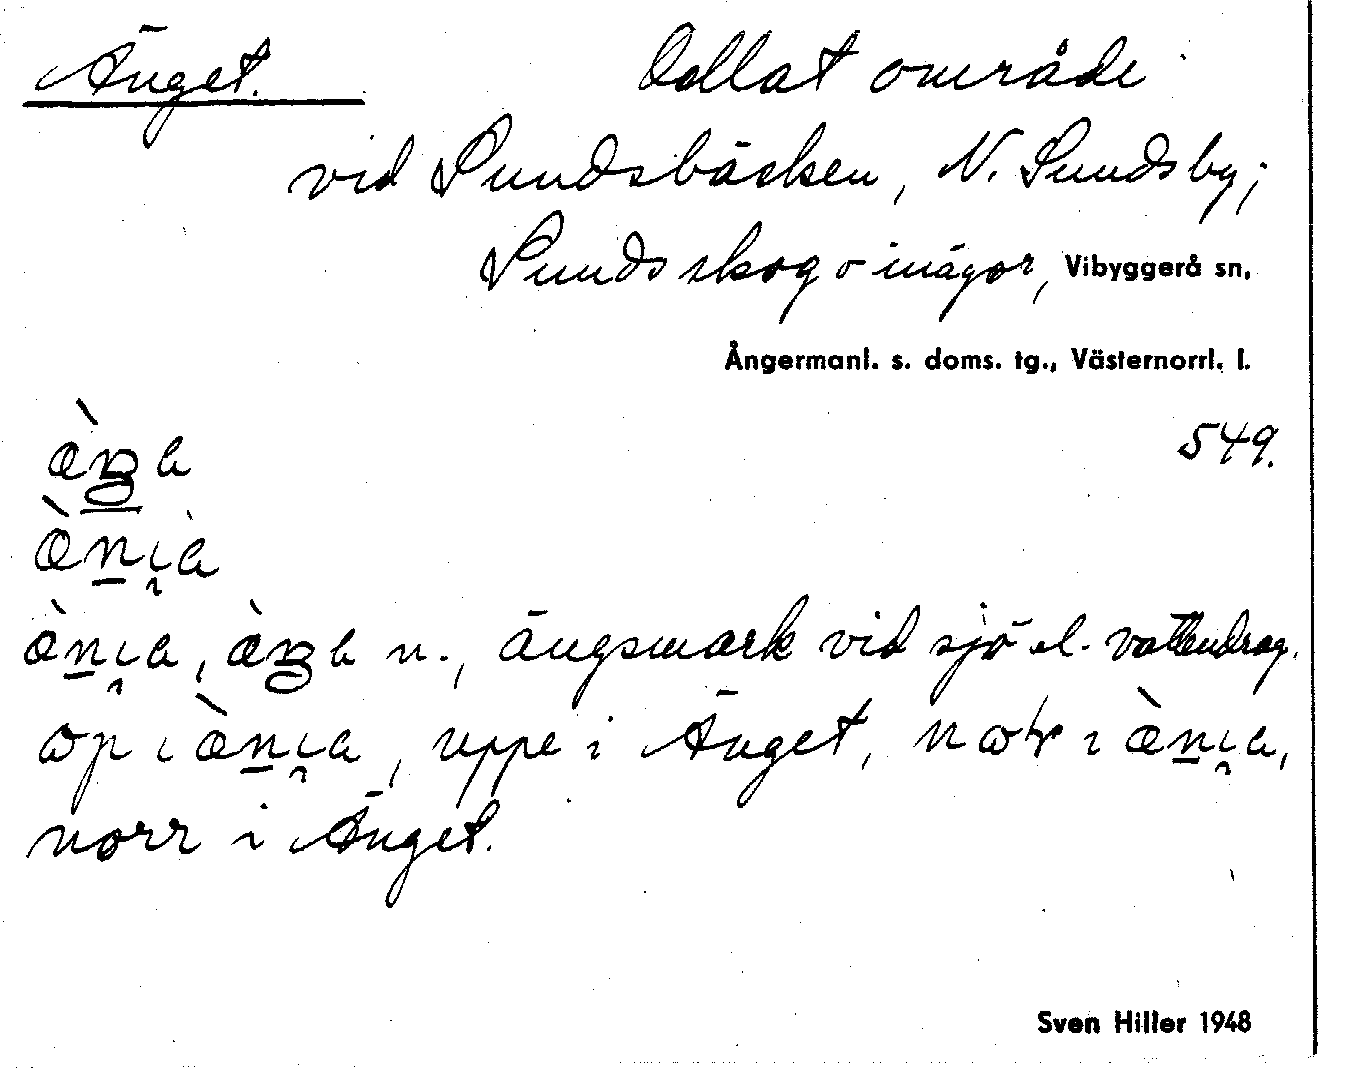 Änget. Odlat område
vid Sundsbäcken, N. Sundsby;
Sunds skog o inägor, Vibyggerå sn,
Ångermanl. s. doms. tg., Västernorrl. l.
549.
n., ängsmark vid sjö el. vattendrag.
uppe i Änget,
norr i Änget.
Sven Hiller 1948